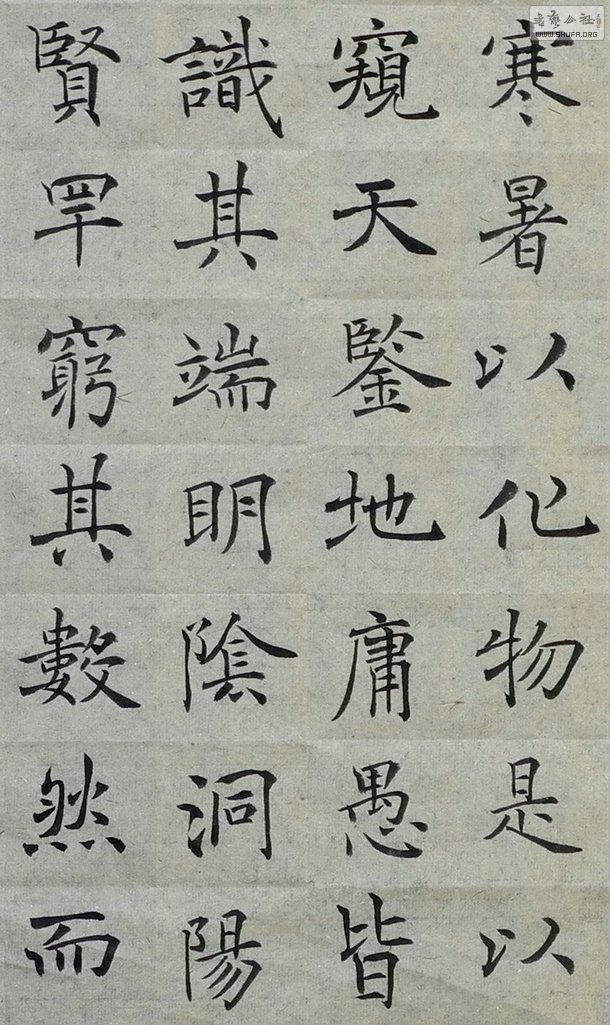 寒暑以化物是以
窺天鑒地庸愚皆
識其端明陰洞陽
賢罕窮其數然而
WWW.SHUFA.ORG